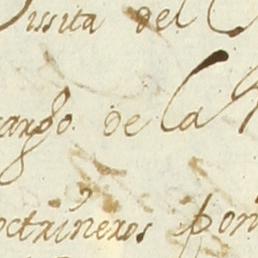 Vissita del
cargo de la
octrineros por